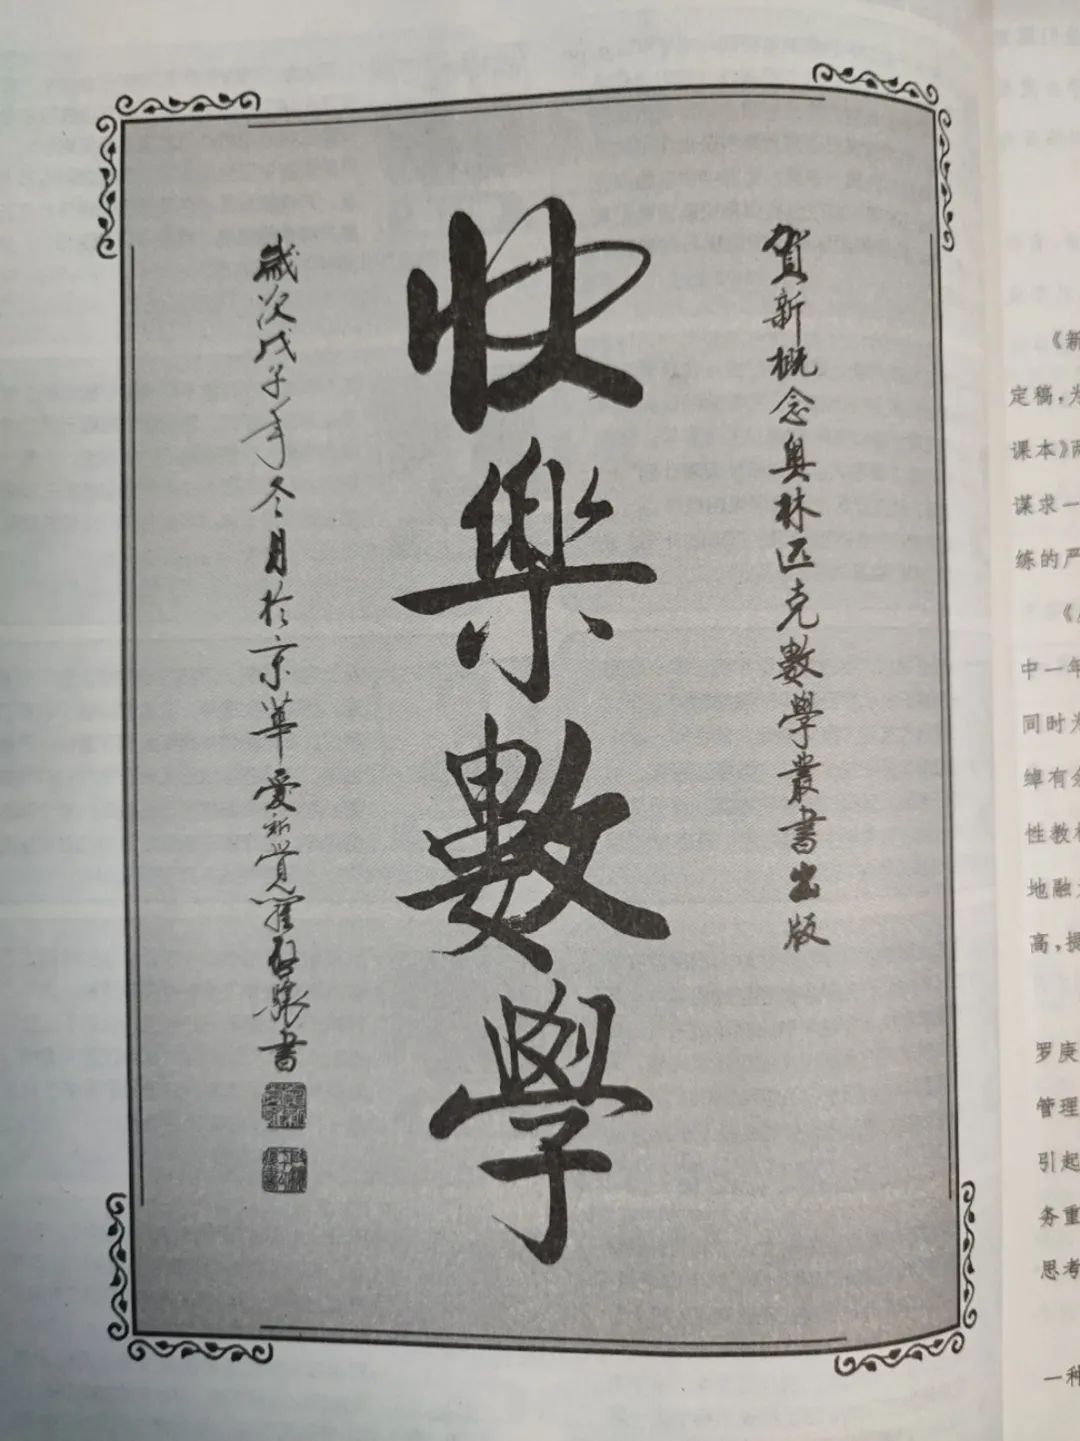 賀新概念奥林匹克數學叢書出版
快樂數學
歲次戊子年冬月於京華愛新覺羅啟驤書
《新
定稿，为
课本》两
谋求一
练的严
中一年
同时为
绰有余
性教材
地融
高，提
罗庚
管理
引起
务重
思考
一种